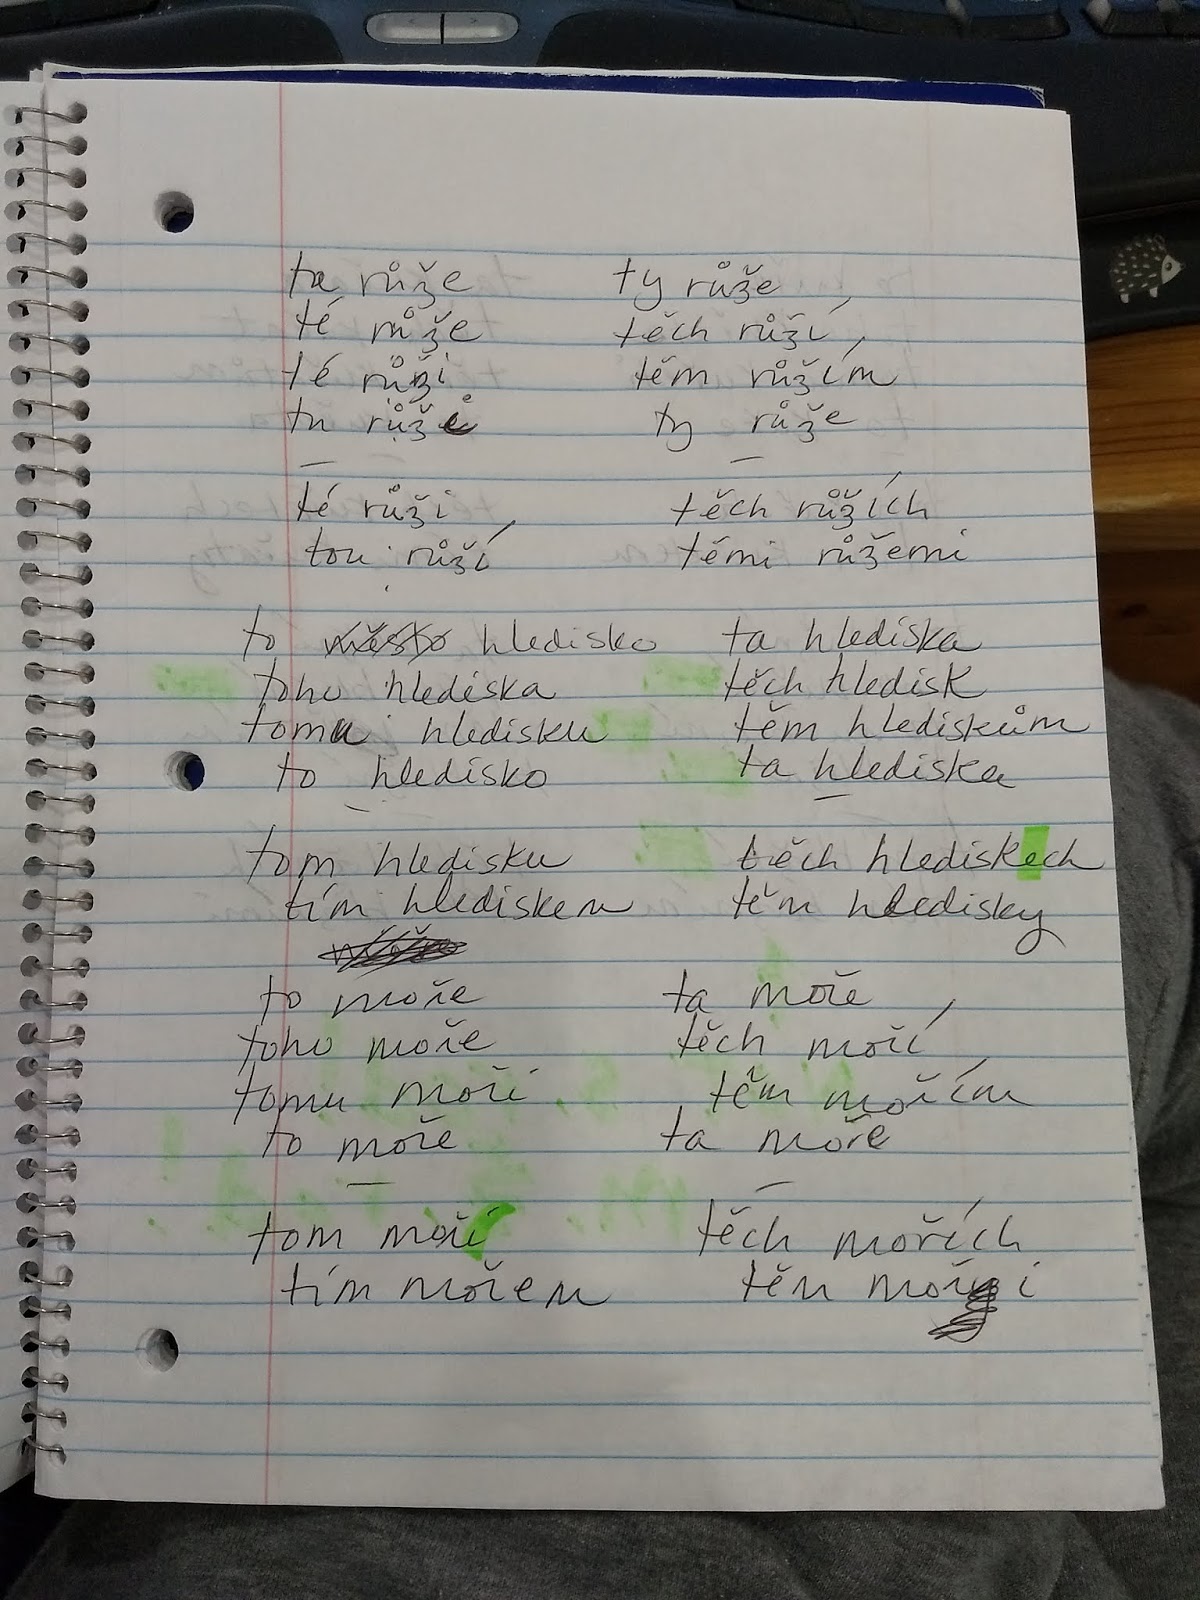 ta růže ty růže
té růže těch růží
té růži těm růžím
tu růži ty růže
— —
té růži těch růžích
tou růží těmi růžemi
to město hledisko ta hlediska
toho hlediska těch hledisk
tomu hledisku těm hlediskům
to hledisko ta hlediska
— —
tom hledisku těch hlediskech
tím hlediskem těm hledisky
to moře ta moře
toho moře těch moří
tomu moři těm mořím
to moře ta moře
— —
tom moří těch mořích
tím mořem těm moři